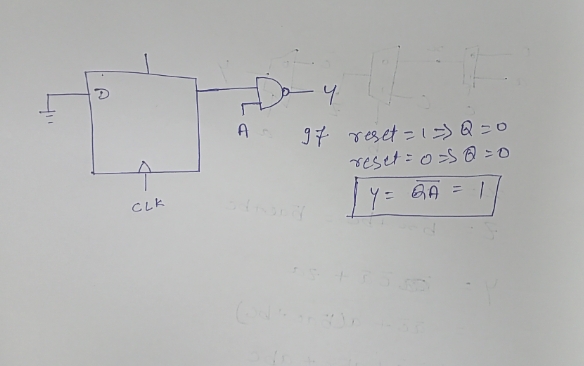 D
Y
A
CLK
If reset = 1 => Q = 0
reset = 0 => Q = 0
Y = \overline{QA} = 1